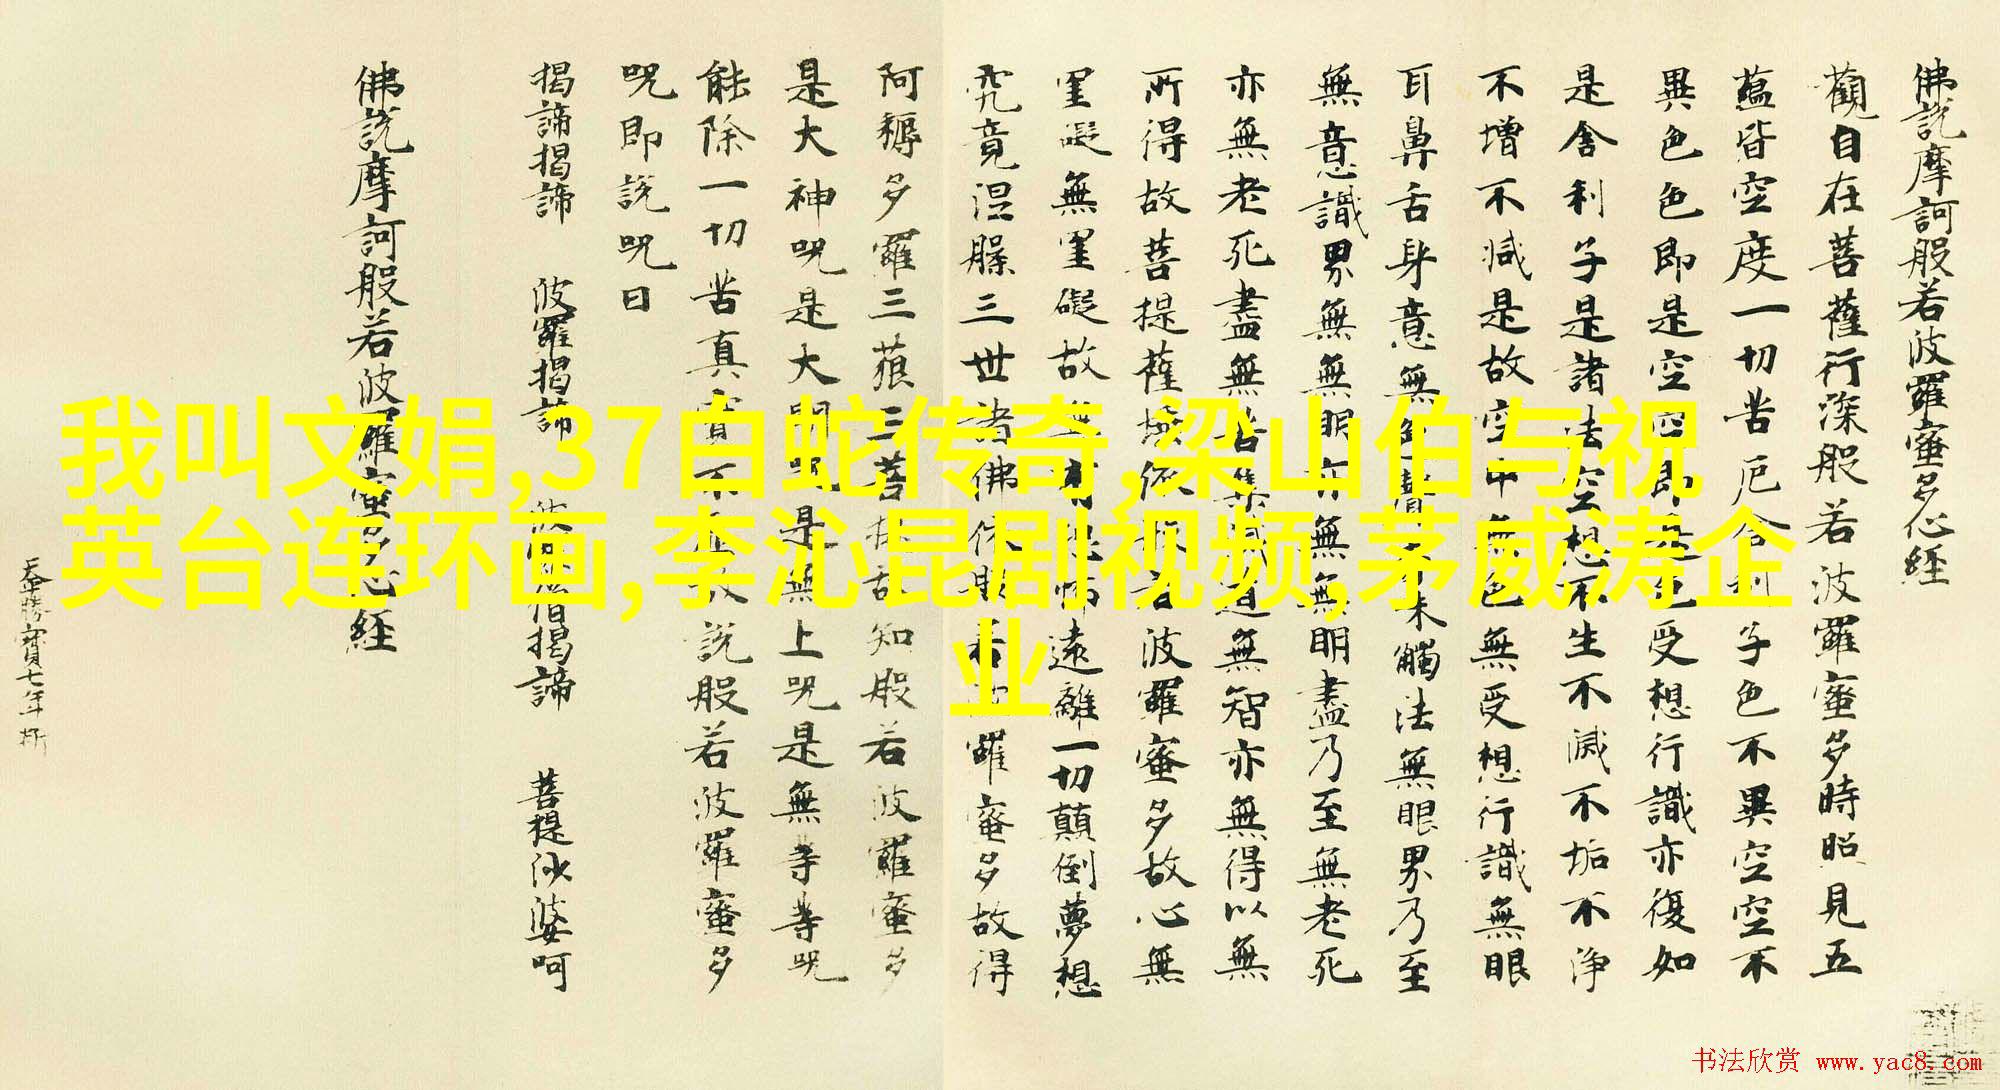 佛說摩訶般若波羅蜜多心經
觀自在菩薩行深般若波羅蜜多時照見五
蘊皆空度一切苦厄舍利子色不異空空不
異色色即是空空即是色受想行識亦復如
是舍利子是諸法空想不生不滅不垢不淨
不增不減是故空中無色無受想行識無眼
耳鼻舌身意無色聲香味觸法無眼界乃至
無意識界無無明亦無無明盡乃至無老死
亦無老死盡無苦集滅道無智亦無得以無
所得故菩提薩埵依般若波羅蜜多故心無
罣礙無罣礙故無有恐怖遠離一切顛倒夢想
究竟涅槃三世諸佛依般若波羅蜜多故得
阿耨多羅三藐三菩提故知般若波羅蜜多
是大神呪是大明呪是無上呪是無等等呪
能除一切苦真實不虛故說般若波羅蜜多
呪即說呪曰
揭諦揭諦 波羅揭諦 波羅僧揭諦 菩提沙婆呵
佛說摩訶般若波羅蜜多心經
我叫文娟,37白蛇传奇,梁山伯与祝
英台连环画,李沁昆剧视频,茅威涛企
业
书法欣赏 www.yac8.com